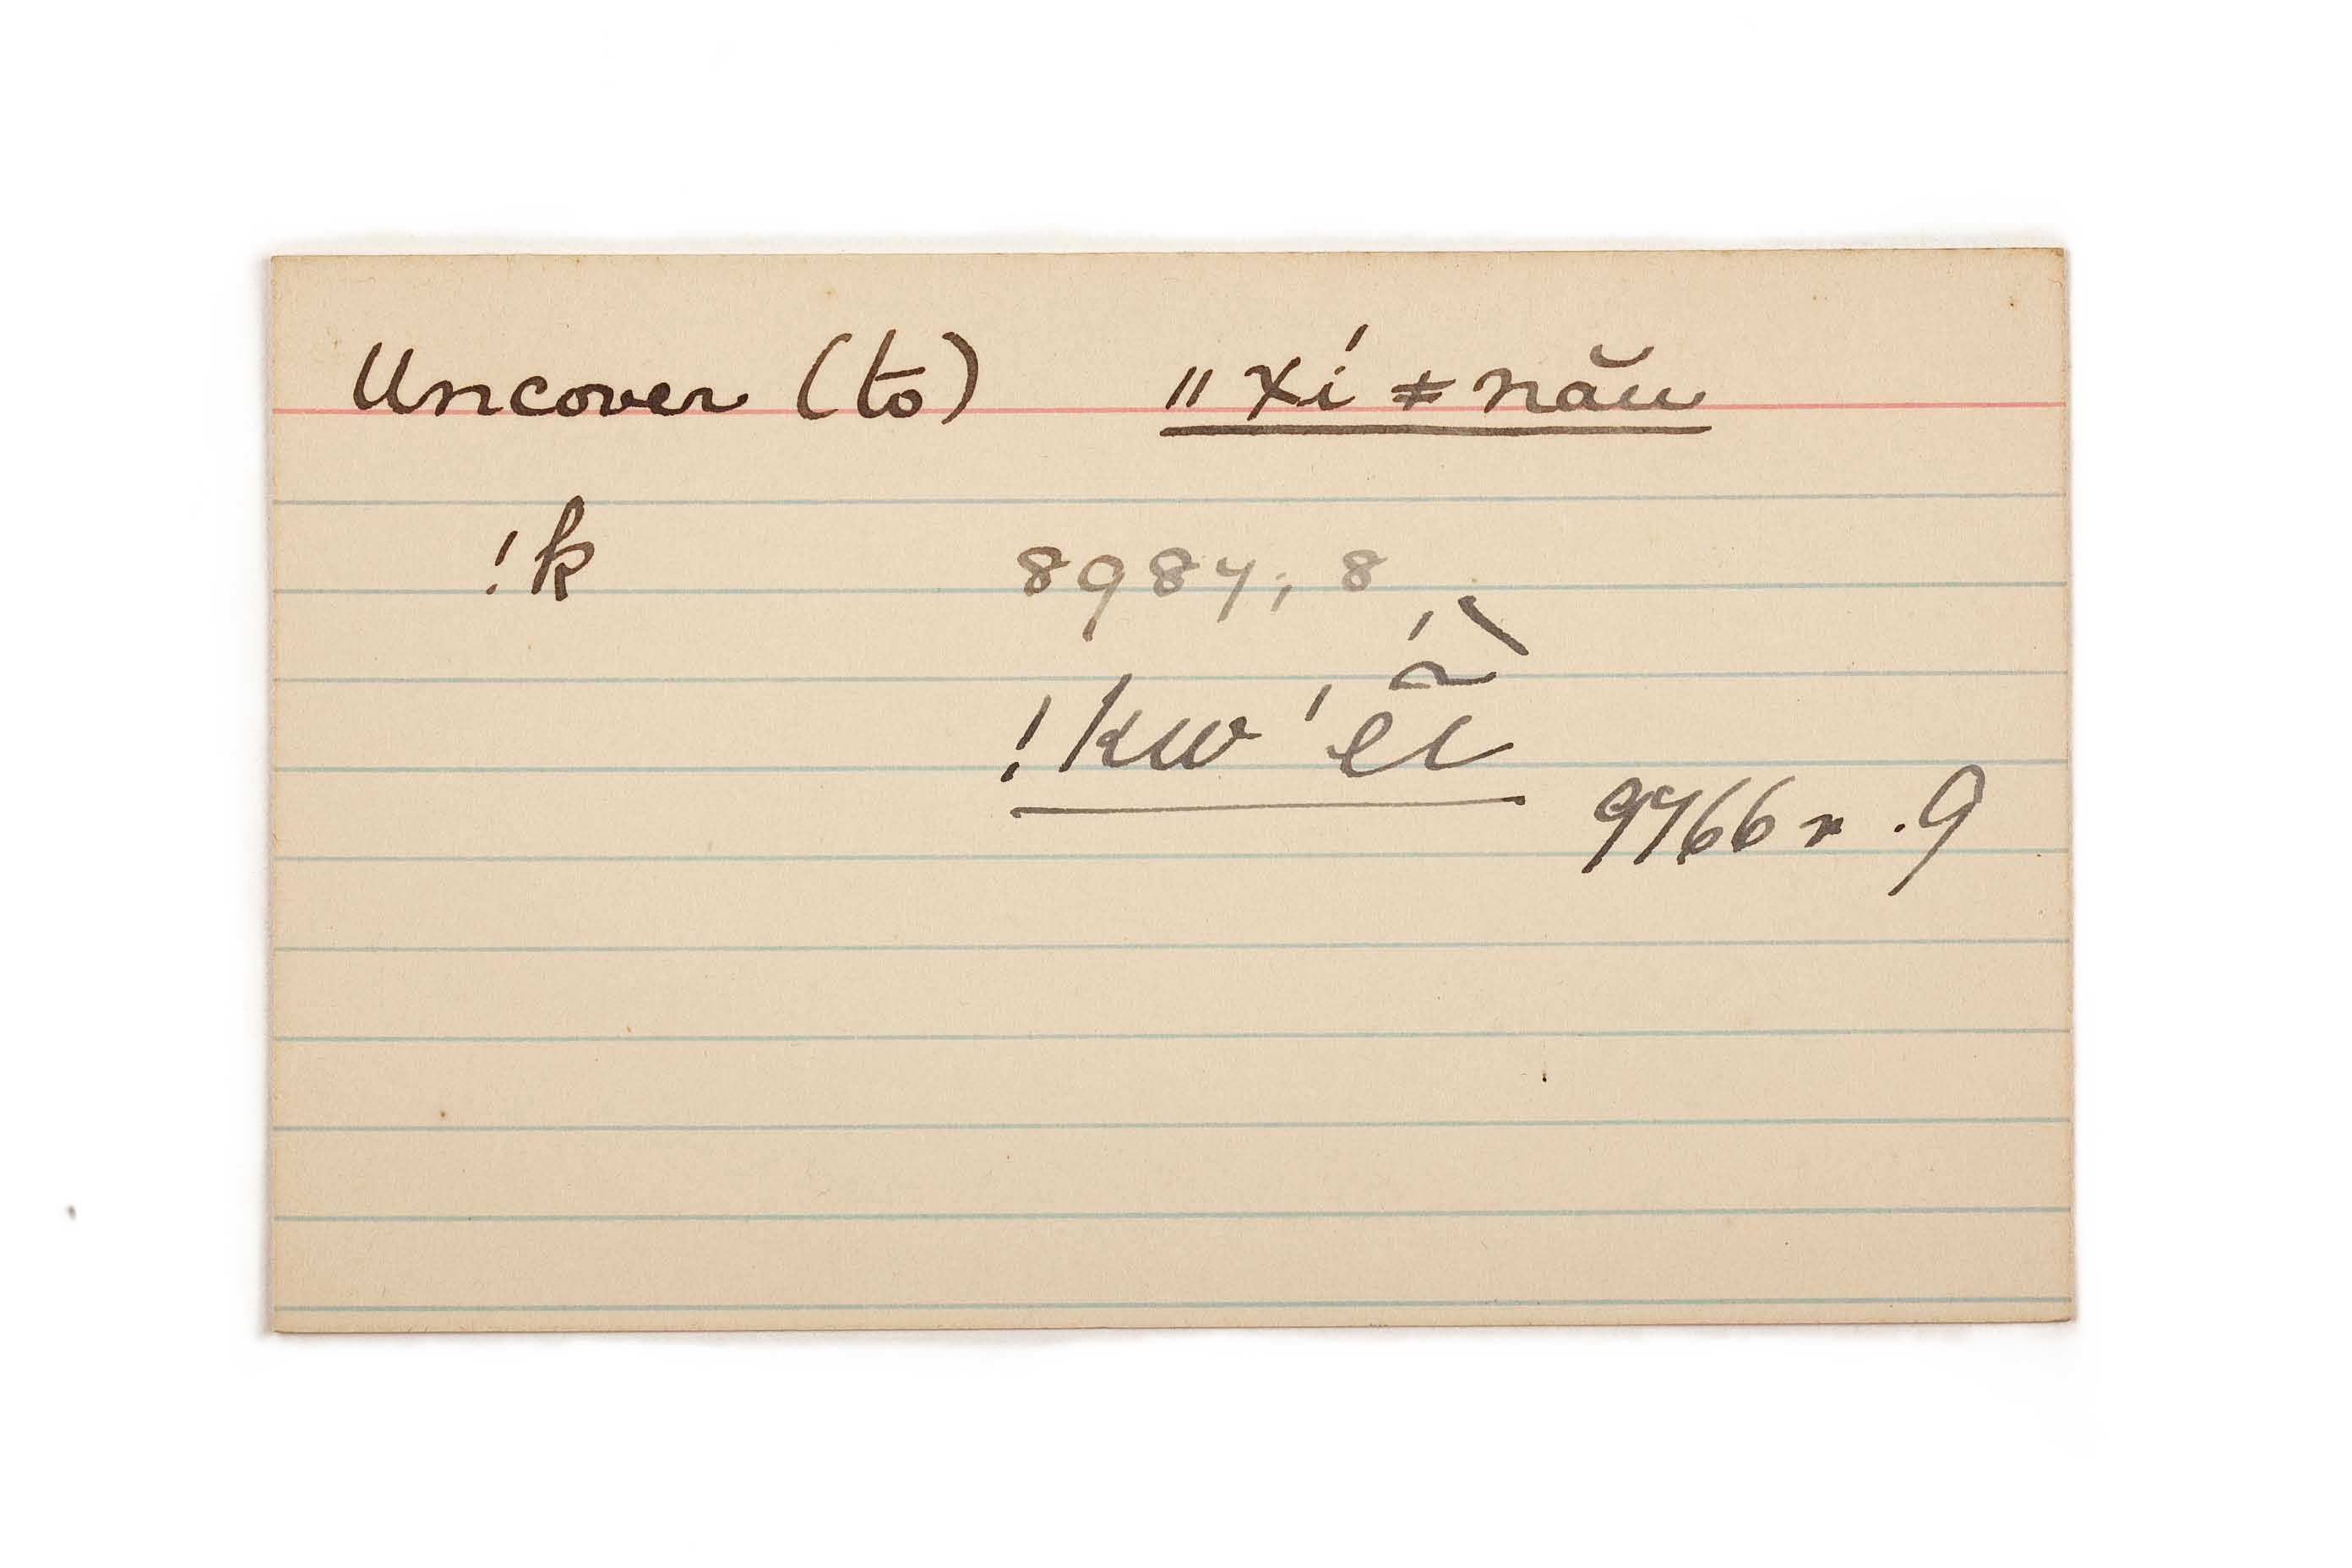 Uncover (to) ǁxí ǂnău
!k 8987; 8
!kw'ẽi
9766 r .9